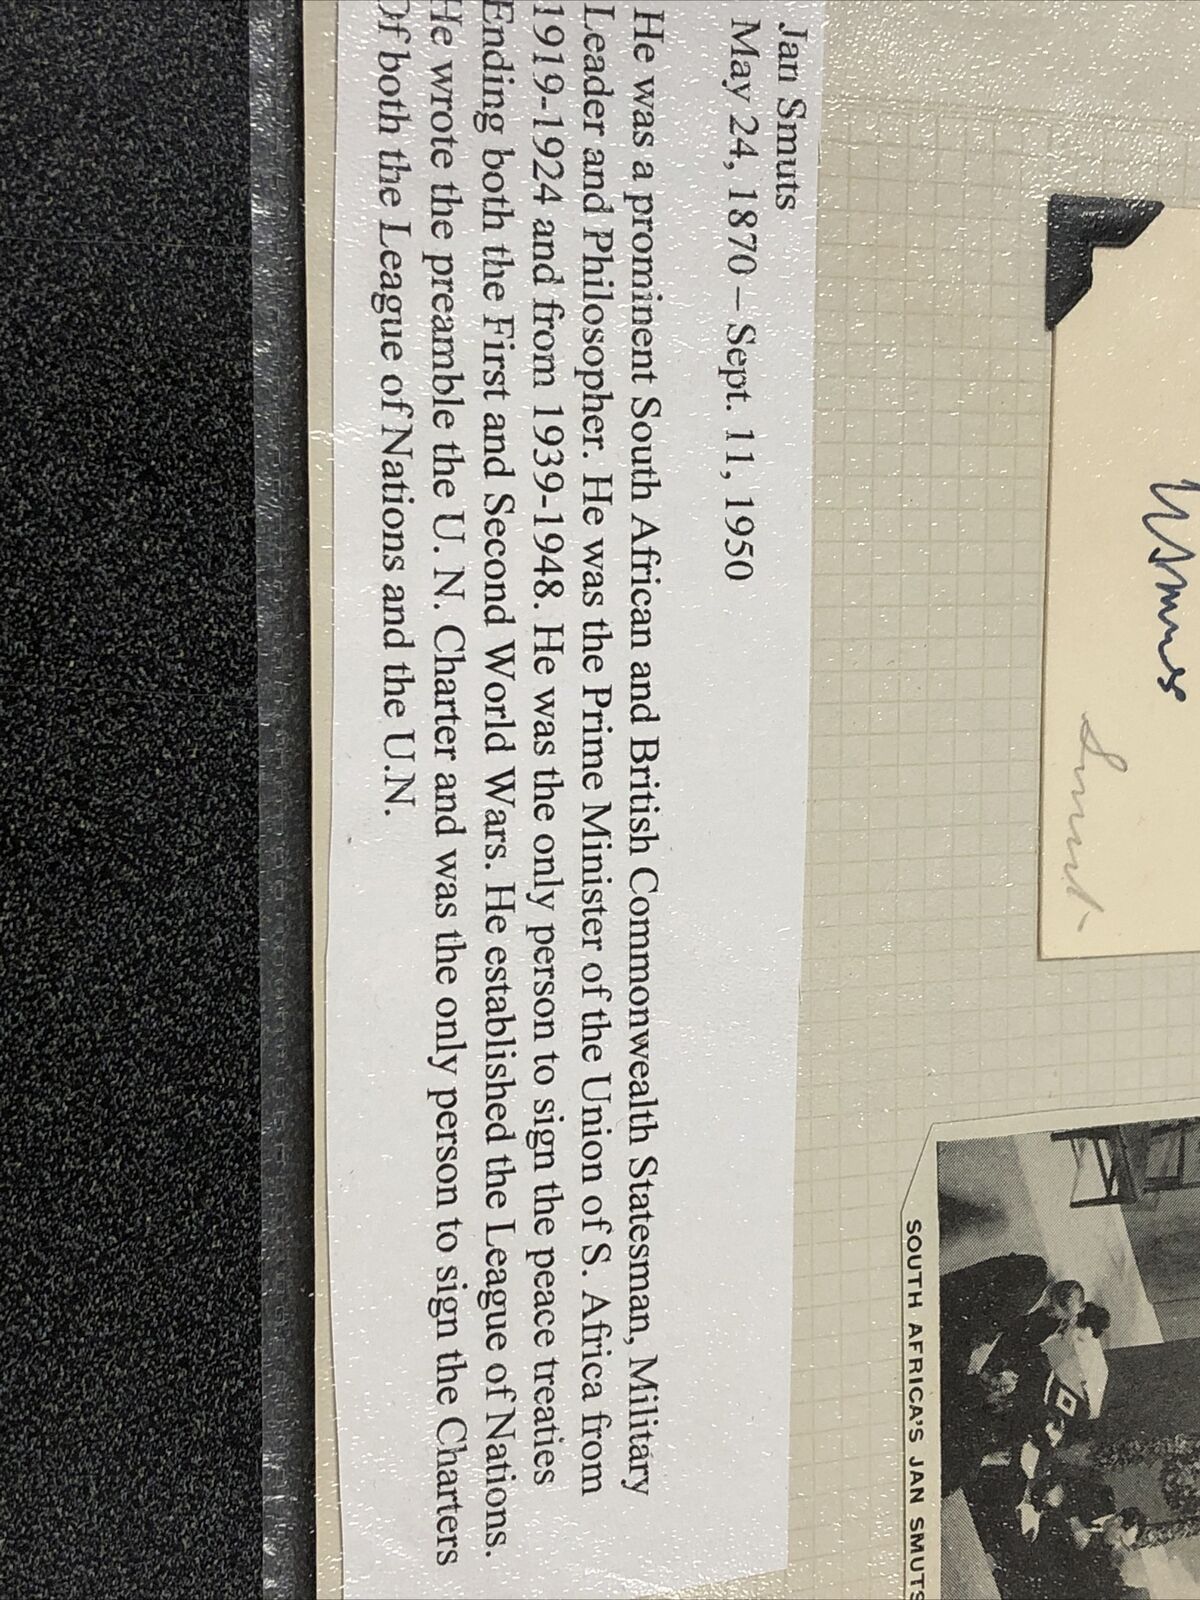 Jan Smuts
May 24, 1870 – Sept. 11, 1950
He was a prominent South African and British Commonwealth Statesman, Military
Leader and Philosopher. He was the Prime Minister of the Union of S. Africa from
1919-1924 and from 1939-1948. He was the only person to sign the peace treaties
Ending both the First and Second World Wars. He established the League of Nations.
He wrote the preamble the U. N. Charter and was the only person to sign the Charters
Of both the League of Nations and the U.N.
Smuts
SOUTH AFRICA'S JAN SMUTS